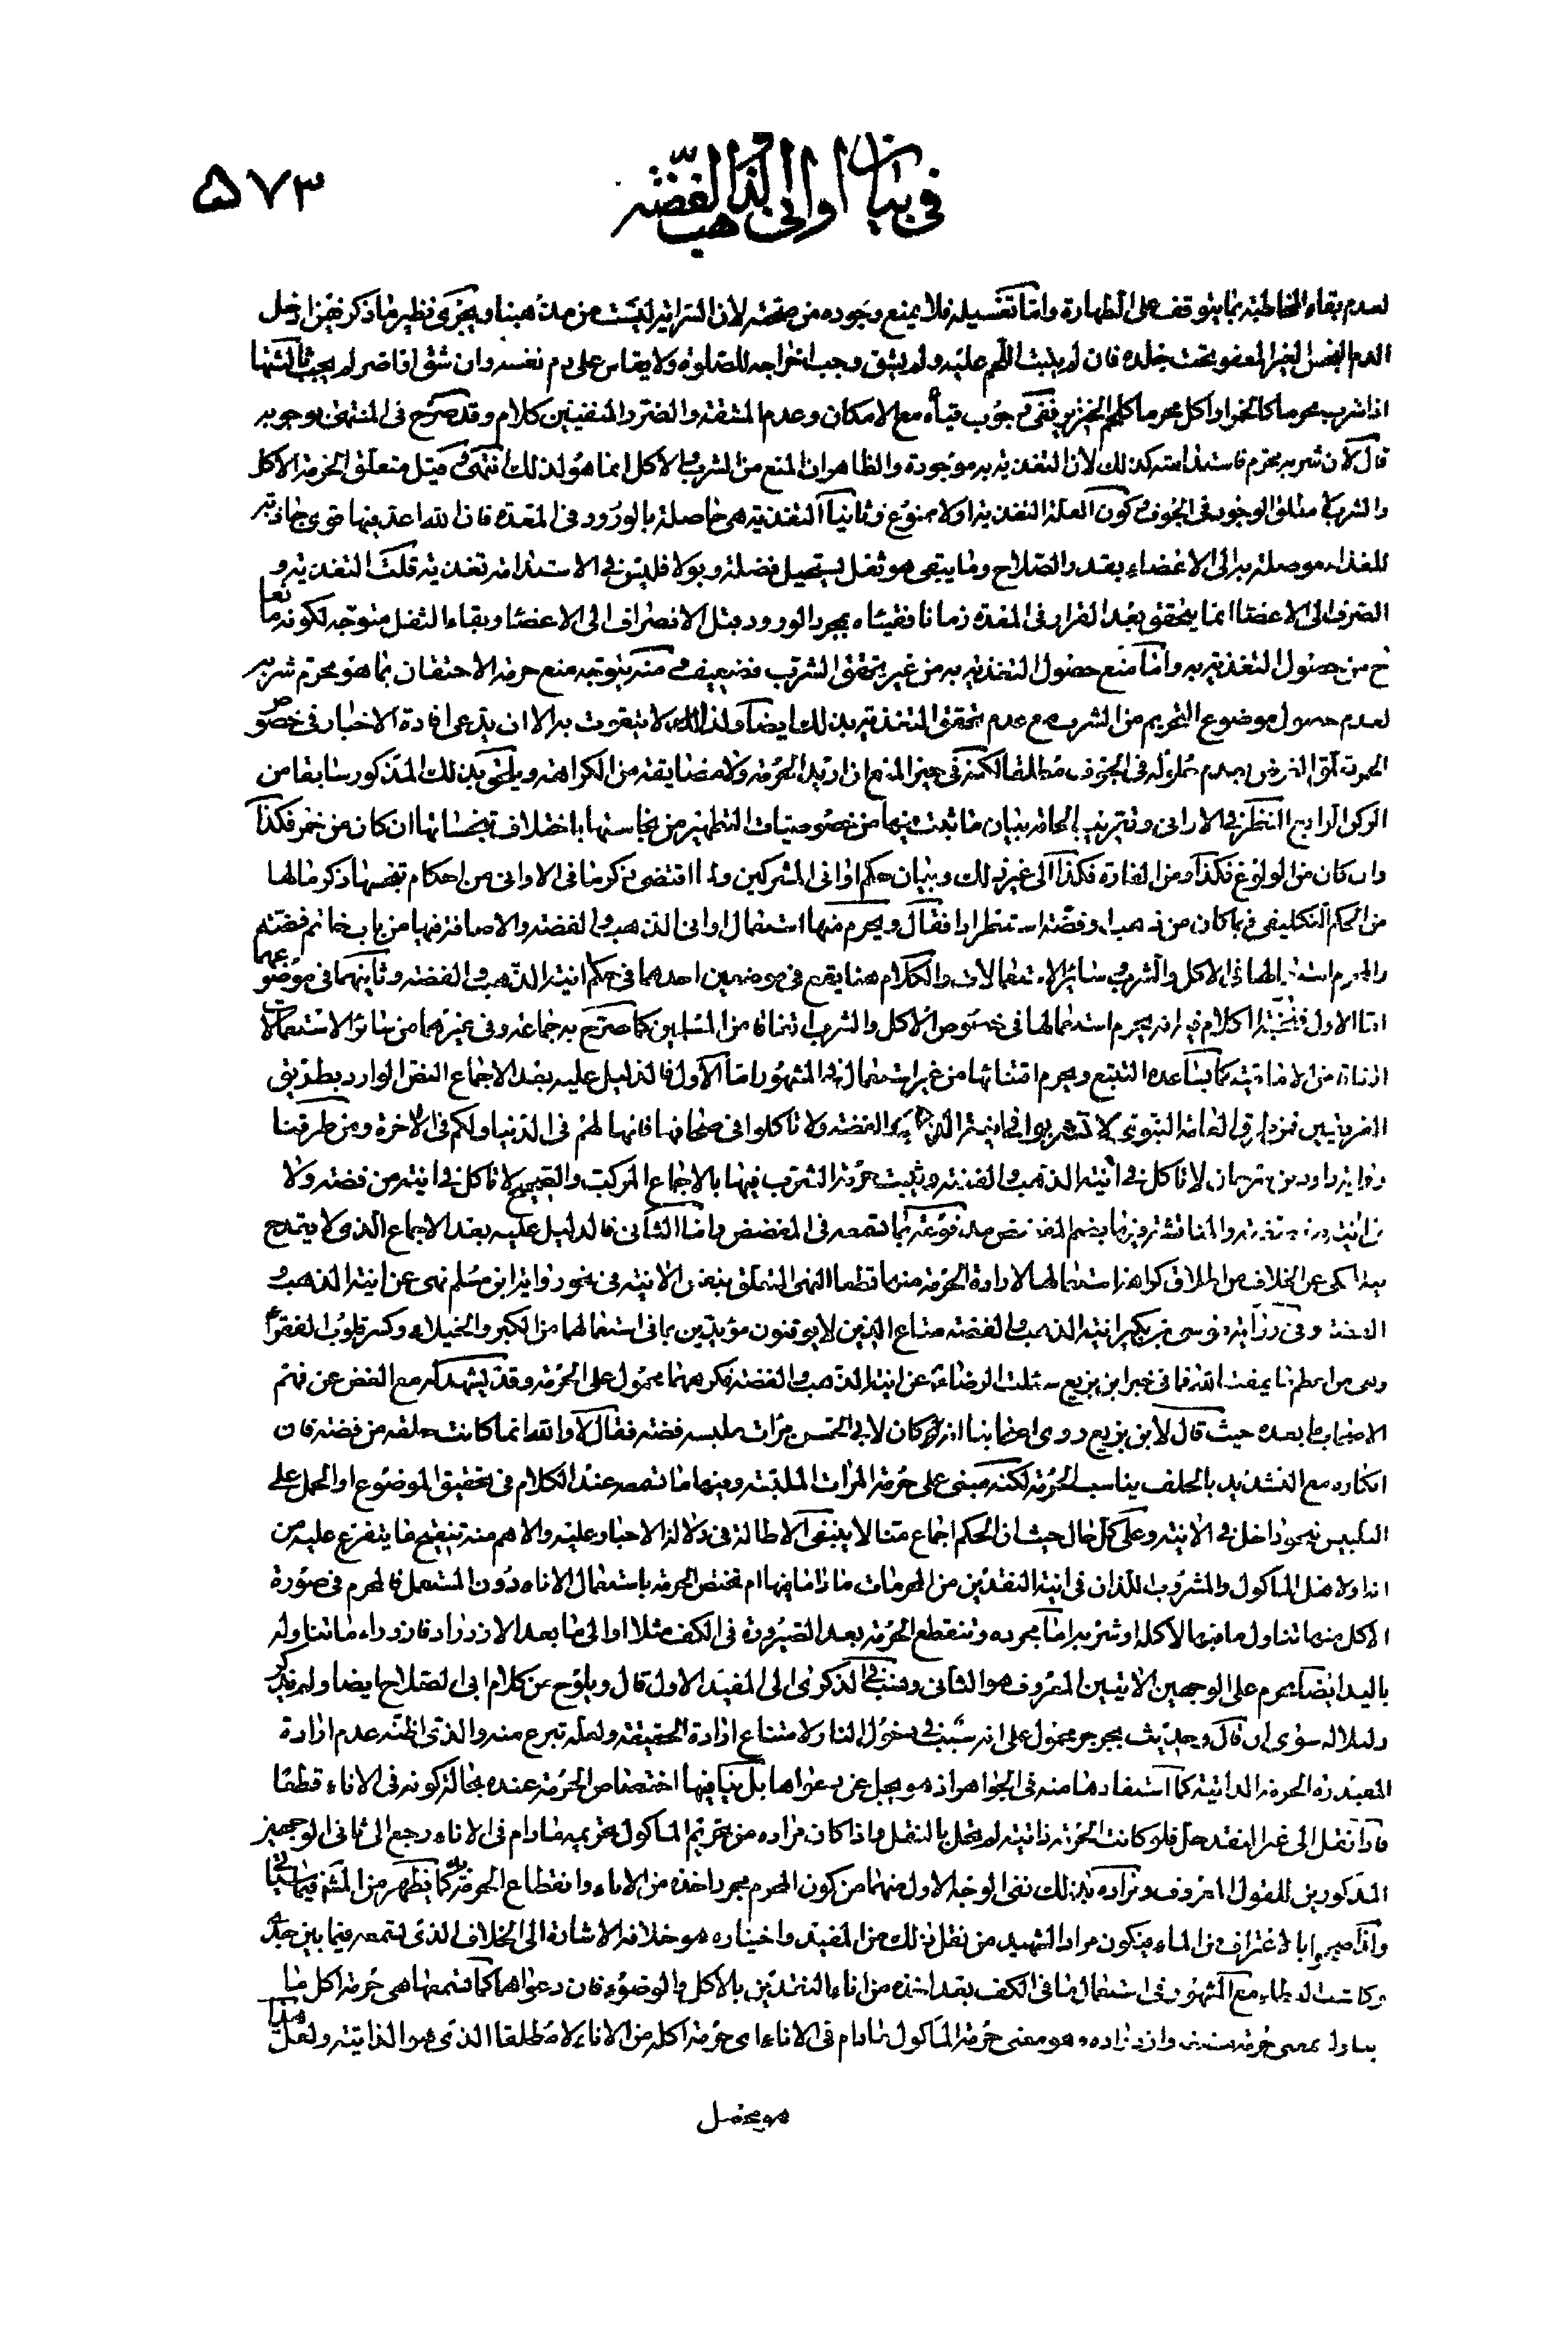 في بيان اواني الذهب والفضة
۵۷۳
لعدم بقاء المخاطبة بما يتوقف على الطهارة واما تغسيله فلا يمنع وجوده من صحته لان السراية ليست من مذهبنا ويجري نظير ما ذكر فيمن ادخل
الدم النجس الغير المعفو تحت جلده فان لم ينبت اللحم عليه ولم يشق وجب اخراجه للصلوة ولا يقاس على دم نفسه وان شق
اذا شرب محرما كالخمر او اكل محرما كلحم الخنزير ففي وجوب قيأه مع الامكان وعدم المشقة والضرر المنفيين كلام وقد صرح في المنتهى بوجوبه
قال لان شربه محرم فاستدامته كذلك لان التغذية به موجودة والظاهر ان المنع من الشرب والاكل انما هو لذلك انتهى وقيل متعلق الحرمة الاكل
والشرب لا مطلق الوجود في الجوف وكون العلة التغذية اولا ممنوع وثانيا التغذية هي حاصلة بالورود في المعدة فان الله اعد فيها قوى جاذبة
للغذاء موصلة به الى الاعضاء بقدر الصلاح وما يبقى هو ثفل يستحيل فضلة وبولا فليس في الاستدامة تغذية قلت التغذية و
الصرف الى الاعضاء انما يتحقق بعد القرار في المعدة زمانا فقيئاه بمجرد الورود قبل الانصراف الى الاعضاء وبقاء الثفل متوجه لكونه مانعا
ح من حصول التغذية به واما منع حصول التغذية به من غير تحقق الشرب فضعيف ومنه يتوجه منع حرمة الاحتقان بما هو محرم شربه
لعدم حصول موضوع التحريم من الشرب مع عدم تحقق التغذية بذلك ايضا ولذا لا يتقوت به الا ان يدعى افادة الاخبار في خصوص
الخمر تعلق الغرض بعدم حلوله في الجوف مطلقا لكنه في حيز المنع ان اريد الحرمة ولا مضايقة من الكراهة ويلحق بذلك المذكور سابقا من
الركن الرابع النظر في الاواني وتقريب الحاقه بيان ما ثبت فيها من خصوصيات التطهير من نجاستها باختلاف نجساتها ان كان من خمر فكذا
وان كان من الولوغ فكذا ومن الفارة فكذا الى غير ذلك وبيان حكم اواني المشركين ولما اقتضى ذكر ما في الاواني من احكام نجسها ذكر ما لها
من الحكم التكليفي فيما كان من ذهب او فضة استطرادا فقال ويحرم منها استعمال اواني الذهب والفضة والاضافة فيها من باب خاتم فضة
والمحرم استعمالها في الاكل والشرب وسائر الاستعمالات والكلام هنا يقع في موضعين احدهما في حكم انية الذهب والفضة وثانيهما في موضوعهما
اما الاول فنخبة الكلام فيه انه يحرم استعمالها في خصوص الاكل والشرب اتفاقا من المسلمين كما صرح به جماعة وفي غيرهما من سائر الاستعمالات
اتفاقا من الامامية كما يساعده التتبع ويحرم اقتنائها من غير استعمال في المشهور اما الاول فالدليل عليه بعد الاجماع النص الوارد بطريق
الفريقين فمن طرق العامة النبوي لا تشربوا في انية الذهب والفضة ولا تاكلوا في صحافها فانها لهم في الدنيا ولكم في الاخرة ومن طرقنا
رواية داود بن سرحان لا تاكل في انية الذهب والفضة ويثبت حرمة الشرب فيها بالاجماع المركب والصحيح لا تاكل في انية من فضة ولا
في انية مفضضة والمناقشة فيه بما يضم المفضض مدفوعة بما تسمعه في المفضض واما الثاني فالدليل عليه بعد الاجماع الذي لا يقدح
فيه ما حكي عن الخلاف من اطلاق كراهة استعمالها لارادة الحرمة منها قطعا النهي المتعلق بنفس الانية في نحو رواية ابن مسلم نهى عن انية الذهب و
الفضة وفي رواية موسى بن بكر انية الذهب والفضة متاع الذين لا يوقنون مؤيدين بما في استعمالهما من الكبر والخيلاء وكسر قلوب الفقراء
خبر ابن بزيع سئلت الرضا عن انية الذهب والفضة فكرههما محمول على الحرمة وقد يشهد له مع الغض عن فهم
الاصحاب ما بعده حيث قال لابن بزيع روى اصحابنا انه كان لابي الحسن مرات ملبسه فضة فقال لا والله انما كانت حلقه من فضة فان
انكاره مع التشديد بالحلف يناسب الحرمة لكنه مبنى على حرمة المرات الملبسة وفيها ما تسمعه عند الكلام في تحقيق الموضوع او الحمل على
التلبيس نحو داخل في الانية وعلى كل حال حيث ان الحكم اجماع منا لا ينبغي الاطالة في دلالة الاخبار عليه والاهم منه تنقيح ما يتفرع عليه من
انه اولا هل الماكول والمشروب اللذان في انية النقدين من المحرمات ما داما فيها ام تختص الحرمة باستعمال الاناء دون المستعمل فالمحرم في صورة
الاكل منها تناول ما فيها لاكله او شربه اما بمجرده وتنقطع الحرمة بعد الصيرورة في الكف مثلا او الى ما بعد الازدراد فازدراد ما تناوله
باليد ايضا يحرم على الوجهين الاتيين المعروف هو الثاني ونسب في الذكرى الى المفيد الاول قال ويلوح من كلام ابي الصلاح ايضا ولم يذكر
دليلا له سوى ان قال وحديث يجرجر محمول على انه سبب في دخول النار لامتناع ارادة الحقيقة ولعله تبرع منه والذي اظنه عدم ارادة
المفيد ره الحرمة الذاتية كما استفادها منه في الجواهر اذ هو يجل عن دعواها بل ينافيها اختصاص الحرمة عنده بحالة كونه في الاناء قطعا
فاذا نقل الى غير النقد حل فلو كانت الحرمة ذاتية لم يحل بالنقل واذا كان مراده من تحريم الماكول تحريمه مادام في الاناء رجع الى ثاني الوجهين
المذكورين للقول المعروف ومراده بذلك نفي الوجه الاول منهما من كون المحرم مجرد اخذه من الاناء وانقطاع الحرمة كما يظهر من
بالاغتراف من الماء فيكون مراد الشهيد من نقل ذلك من المفيد واختياره هو خلافه الاشارة الى الخلاف الذي تسمعه فيما بين
مع المشهور في استعمال ما في الكف بعد اخذه من اناء النقدين بالاكل والوضوء فان دعواها كما تسمعها هي حرمة اكل ما
وازدراده وهو معنى حرمة الماكول مادام في الاناء اي حرمة اكله من الاناء لا مطلقا الذي هو الذاتية ولعل هذا
هو محصل